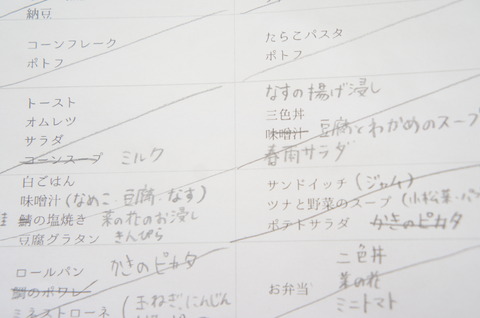 納豆
コーンフレーク
ポトフ
たらこパスタ
ポトフ
トースト
オムレツ
サラダ
コーンスープ ミルク
なすの揚げ浸し
三色丼
味噌汁 豆腐とわかめのスープ
春雨サラダ
白ごはん
味噌汁(なめこ・豆腐・なす)
鮭 鯖の塩焼き 菜の花のお浸し
豆腐グラタン きんぴら
サンドイッチ(ジャム)
ツナと野菜のスープ(小松菜・パ
ポテトサラダ かきのピカタ
ロールパン かきのピカタ
鯛のポワレ
ミネストローネ(玉ねぎ、にんじん
二色丼
お弁当 菜の花
ミニトマト